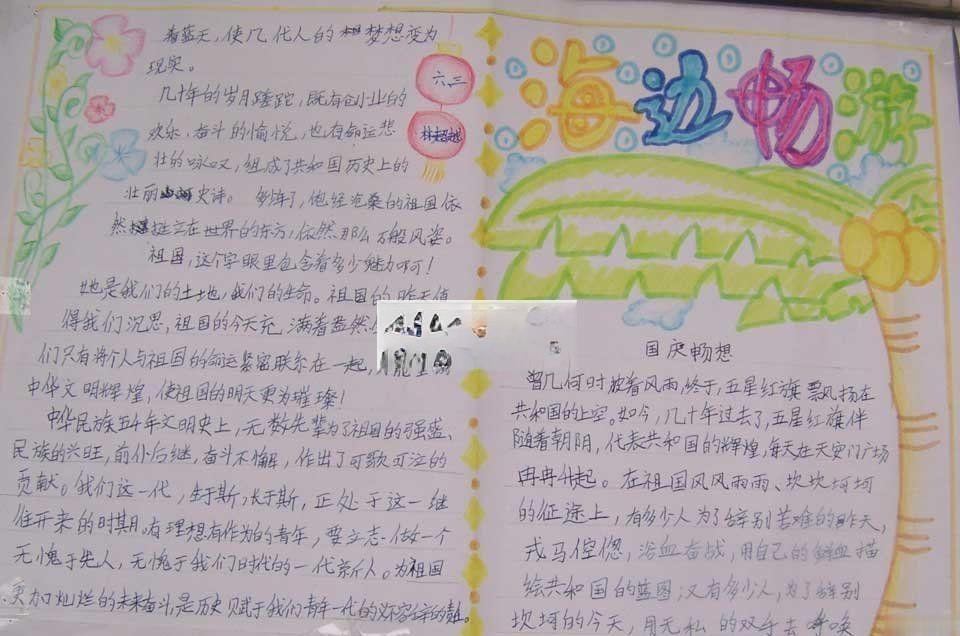 海边畅游
国庆畅想
曾几何时披着风雨,终于,五星红旗飘扬在
共和国的上空。如今,几十年过去了,五星红旗伴
随着朝阴,代表共和国的辉煌,每天在天安门广场
冉冉升起。在祖国风风雨雨、坎坎坷坷
的征途上,有多少人为了辞别苦难的昨天,
戎马倥偬,浴血奋战,用自己的鲜血描
绘共和国的蓝图;又有多少人,为了辞别
坎坷的今天,用无私的双手去呼唤
着蓝天,使几代人的梦想变为
现实。
几十年的岁月蹉跎,既有创业的
欢乐,奋斗的愉悦,也有命运悲
壮的咏叹,组成了共和国历史上的
壮丽史诗。多年了,饱经沧桑的祖国依
然挺立在世界的东方,依然那么万般风姿。
祖国,这个字眼里包含着多少魅力啊!
她是我们的土地,我们的生命。祖国的昨天值
得我们沉思,祖国的今天充满着盎然
们只有将个人与祖国的命运紧密联系在一起,
中华文明辉煌,使祖国的明天更为璀璨!
中华民族五千年文明史上,无数先辈为了祖国的强盛、
民族的兴旺,前仆后继,奋斗不懈,作出了可歌可泣的
贡献。我们这一代,生于斯,长于斯,正处于这一继
往开来的时期,有理想有作为的青年,要立志做一个
无愧于先人,无愧于我们时代的一代新人。为祖国
更加灿烂的未来奋斗是历史赋于我们青年一代的义不容辞的责任。
六.三